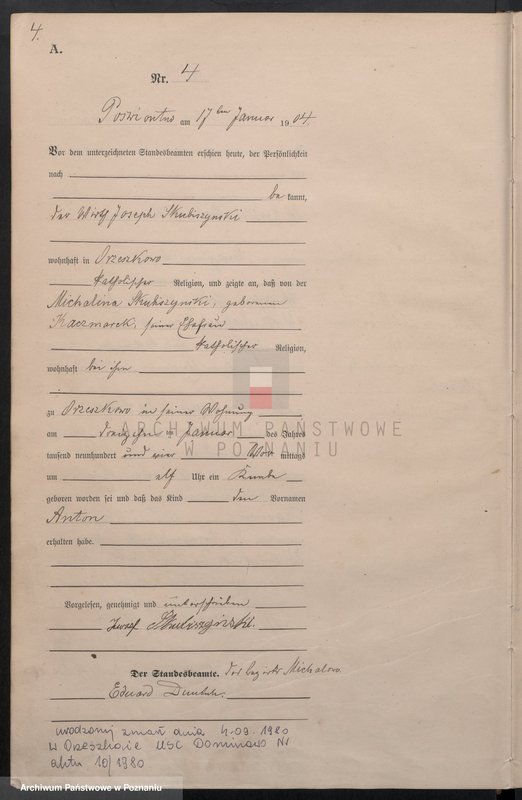 4.
A.
Nr. 4
am 17ten Januar 1904.
Vor dem unterzeichneten Standesbeamten erschien heute, der Persönlichkeit
nach
bekannt,
der Wirth Joseph Skubiszynski
wohnhaft in Orzeszkowo
katholischer Religion, und zeigte an, daß von der
Michalina Skubiszynski, geborenen
Kaczmarek, seiner Ehefrau
katholischer Religion,
wohnhaft bei ihm
zu Orzeszkowo in seiner Wohnung
am dreizehnten Januar des Jahres
tausend neunhundert und vier Vor mittags
um elf Uhr ein Knabe
geboren worden sei und daß das Kind den Vornamen
Anton
erhalten habe.
Vorgelesen, genehmigt und unterschrieben
Jozef Skubiszyński.
Der Standesbeamte.
Eduard
urodzony zmarł dnia 4.09.1980
w USC Dominowo Nr
aktu 10/1980
ARCHIWUM PAŃSTWOWE
W POZNANIU
Archiwum Państwowe w Poznaniu